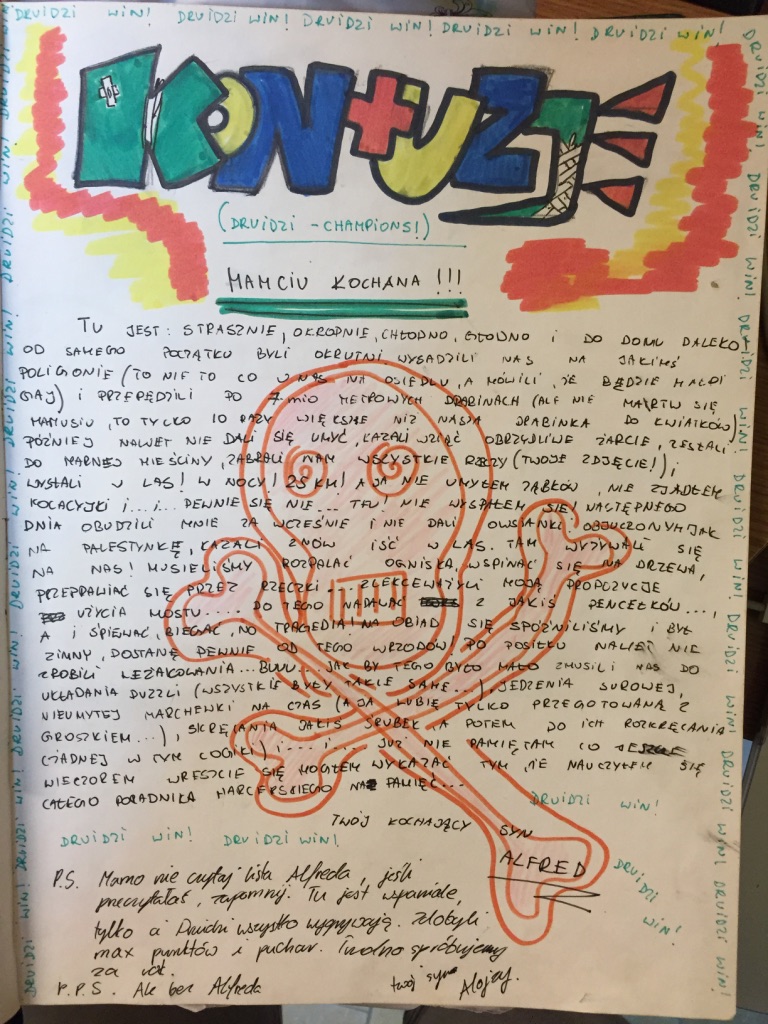 DRUIDZI WIN! DRUIDZI WIN! DRUIDZI WIN! DRUIDZI WIN! DRUIDZI WIN!
KONTUZJE
(DRUIDZI - CHAMPIONS!)
MAMCIU KOCHANA !!!
TU JEST: STRASZNIE, OKROPNIE, CHŁODNO, GŁODNO I DO DOMU DALEKO.
OD SAMEGO POCZĄTKU BYLI OKRUTNI, WYSADZILI NAS NA JAKIMŚ
POLIGIONIE (TO NIE TO CO U NAS NA OSIEDLU, A MÓWILI, ŻE BĘDZIE MAŁPI
GAJ) I PRZEPĘDZILI PO 7-MIO METROWYCH DRABINACH (ALE NIE MARTW SIĘ
MAMUSIU, TO TYLKO 10 RAZY WIĘKSZE NIŻ NASZA DRABINKA DO KWIATKÓW)
PÓŹNIEJ NAWET NIE DALI SIĘ UMYĆ, KAZALI WZIĄĆ OBRZYDLIWE ŻARCIE, ZESŁALI
DO MARNEJ MIEŚCINY, ZABRALI NAM WSZYSTKIE RZECZY (TWOJE ZDJĘCIE!) I
WYSŁALI W LAS! W NOCY! 25 KM! A JA NIE UMYŁEM ZĄBKÓW, NIE ZJADŁEM
KOLACYJKI I... I... PEWNIE SIĘ NIE... TFU! NIE WYSPAŁEM SIĘ! NASTĘPNEGO
DNIA OBUDZILI MNIE ZA WCZEŚNIE I NIE DALI OWSIANKI. OBJUCZONYM JAK
NA PALESTYNKĘ, KAZALI ZNÓW IŚĆ W LAS. TAM WYŻYWALI SIĘ
NA NAS! MUSIELIŚMY ROZPALAĆ OGNISKA, WSPINAĆ SIĘ NA DRZEWA,
PRZEPRAWIAĆ SIĘ PRZEZ RZECZKI... ZLEKCEWAŻYLI MOJĄ PROPOZYCJE
UŻYCIA MOSTU.... DO TEGO NADAWAĆ Z JAKIŚ PENCETKÓW...,
A I ŚPIEWAĆ, BIEGAĆ, NO TRAGEDIA! NA OBIAD SIĘ SPÓŹNILIŚMY I BYŁ
ZIMNY, DOSTANĘ PEWNIE OD TEGO WRZODÓW! PO POSIŁKU NAWET NIE
ZROBILI LEŻAKOWANIA...BUUU...JAK BY TEGO BYŁO MAŁO ZMUSILI NAS DO
UKŁADANIA PUZZLI (WSZYSTKIE BYŁY TAKIE SAME...), JEDZENIA SUROWEJ,
NIEUMYTEJ MARCHEWKI NA CZAS (A JA LUBIĘ TYLKO PRZEGOTOWANĄ Z
GROSZKIEM...), SKRĘCANIA JAKIŚ ŚRUBEK, A POTEM DO ICH ROZKRĘCANIA
(ŻADNEJ W TYM LOGIKI)....I.... JUŻ NIE PAMIĘTAM CO JESZCZE
WIECZOREM WRESZCIE SIĘ MOGŁEM WYKAZAĆ TYM, ŻE NAUCZYŁEM SIĘ
CAŁEGO PORADNIKA HARCERSKIEGO NA PAMIĘĆ...
TWÓJ KOCHAJĄCY SYN
ALFRED
DRUIDZI WIN!
DRUIDZI WIN! DRUIDZI WIN!
DRUIDZI WIN!
P.S. Mamo nie czytaj lista Alfreda, jeśli
przeczytałaś, zapomnij. Tu jest wspaniale,
tylko ci Druidzi wszystko wygrywają. Zdobyli
max punktów i puchar. Trudno spróbujemy
za rok.
twój syn Alojzy.
P.P.S. Ale bez Alfreda
DRUIDZI WIN! DRUIDZI WIN! DRUIDZI WIN! DRUIDZI WIN! DRUIDZI WIN! DRUIDZI WIN!
DRUIDZI WIN! DRUIDZI WIN! DRUIDZI WIN! DRUIDZI WIN! DRUIDZI WIN! DRUIDZI WIN!